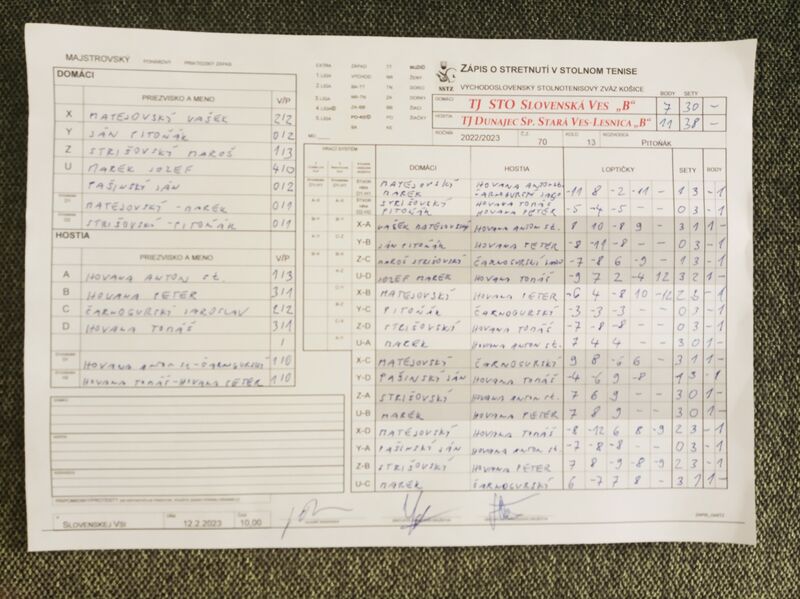 MAJSTROVSKÝ POHÁROVÝ PRIATEĽSKÝ ZÁPAS
DOMÁCI
PRIEZVISKO A MENO V/P
X MATEJOVSKÝ VAŠEK 2/2
Y JÁN PITOŇÁK 0/2
Z STRIŠOVSKÝ MAROŠ 1/3
U MAREK JOZEF 4/0
PAŠINSKÝ JÁN 0/2
MATEJOVSKÝ - MAREK 0/1
STRIŠOVSKÝ - PITOŇÁK 0/1
HOSTIA
PRIEZVISKO A MENO V/P
A HOVANA ANTON st. 1/3
B HOVANA PETER 3/1
C ČARNOGURSKÝ JAROSLAV 2/2
D HOVANA TOMÁŠ 3/1
/
HOVANA ANTON st.-ČARNOGURSKÝ 1/0
HOVANA TOMÁŠ - HOVANA PETER 1/0
SLOVENSKEJ VSI 12.2.2023 10,00
SSTZ
ZÁPIS O STRETNUTÍ V STOLNOM TENISE
VÝCHODOSLOVENSKÝ STOLNOTENISOVÝ ZVÄZ KOŠICE
BODY SETY
DOMÁCI TJ STO SLOVENSKÁ VES „B" 7 30 -
HOSTIA TJ DUNAJEC SP. STARÁ VES-LESNICA „B" 11 38 -
ROČNÍK 2022/2023 Č.S. 70 KOLO 13 ROZHODCA PITOŇÁK
HRACÍ SYSTÉM
DOMÁCI HOSTIA LOPTIČKY SETY BODY
MATEJOVSKÝ MAREK HOVANA ANTON st. -11 8 -2 -11 - 1 3 - 1
STRIŠOVSKÝ PITOŇÁK HOVANA TOMÁŠ HOVANA PETER -5 -4 -5 - - 0 3 - 1
X-A VAŠEK MATEJOVSKÝ HOVANA ANTON st. 8 10 -8 9 - 3 1 1 -
Y-B JÁN PITOŇÁK HOVANA PETER -8 -11 -8 - - 0 3 - 1
Z-C MAROŠ STRIŠOVSKÝ ČARNOGURSKÝ -7 -8 6 -9 - 1 3 - 1
U-D JOZEF MAREK HOVANA TOMÁŠ -9 7 2 -4 12 3 2 1 -
X-B MATEJOVSKÝ HOVANA PETER -6 4 -8 10 -12 2 3 - 1
Y-C PITOŇÁK ČARNOGURSKÝ -3 -3 -3 - - 0 3 - 1
Z-D STRIŠOVSKÝ HOVANA TOMÁŠ -7 -8 -8 - - 0 3 - 1
U-A MAREK HOVANA ANTON st 7 4 4 - - 3 0 1 -
X-C MATEJOVSKÝ ČARNOGURSKÝ 9 8 -6 6 - 3 1 1 -
Y-D PAŠINSKÝ JÁN HOVANA TOMÁŠ -4 -6 9 -8 - 1 3 - 1
Z-A STRIŠOVSKÝ HOVANA ANTON st. 7 6 9 - - 3 0 1 -
U-B MAREK HOVANA PETER 7 8 9 - - 3 0 1 -
X-D MATEJOVSKÝ HOVANA TOMÁŠ -8 -12 6 8 -9 2 3 - 1
Y-A PAŠINSKÝ JÁN HOVANA ANTON st. -7 -8 -8 - - 0 3 - 1
Z-B STRIŠOVSKÝ HOVANA PETER 7 8 -9 -8 -9 2 3 - 1
U-C MAREK ČARNOGURSKÝ 6 -7 7 8 - 3 1 1 -